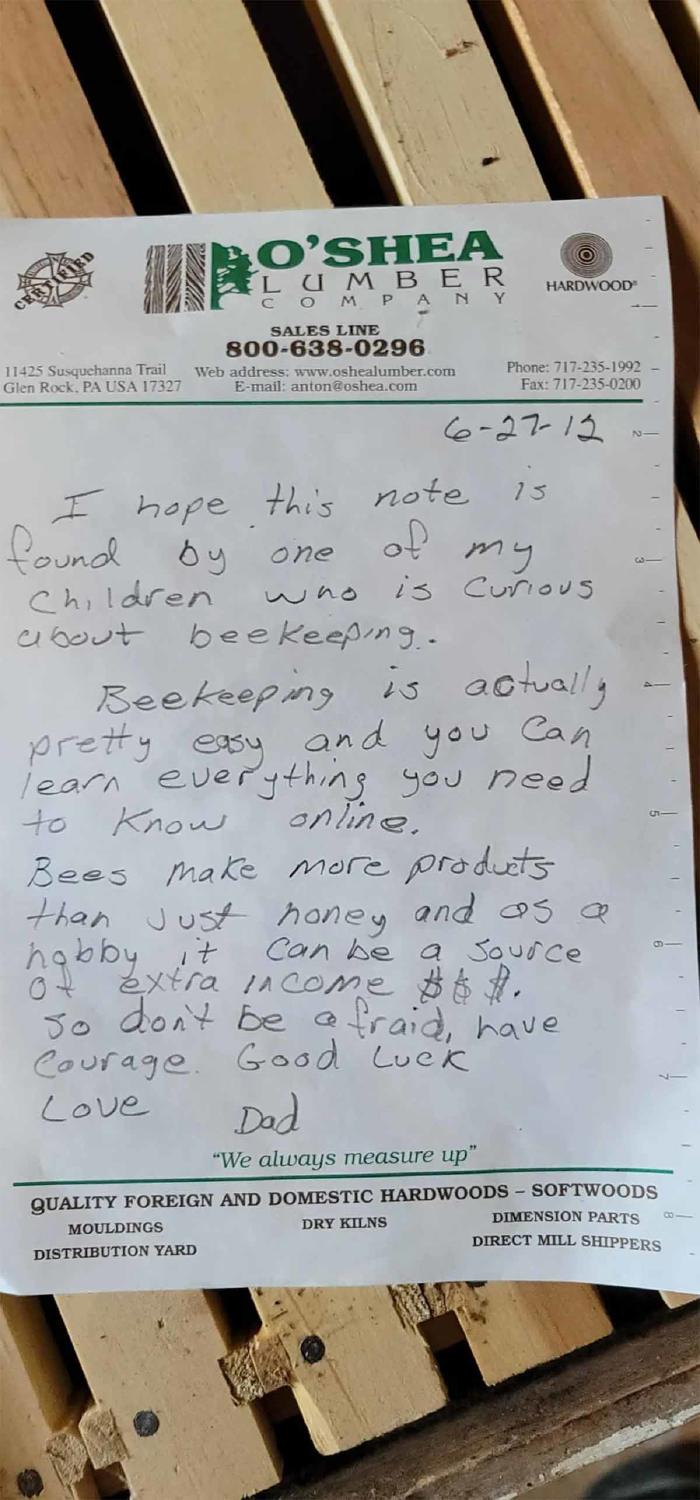 CERTIFIED
O'SHEA
LUMBER
COMPANY
HARDWOOD®
SALES LINE
800-638-0296
11425 Susquehanna Trail
Glen Rock, PA USA 17327
Web address: www.oshealumber.com
E-mail: anton@oshea.com
Phone: 717-235-1992
Fax: 717-235-0200
6-27-12
I hope this note is
found by one of my
children who is curious
about beekeeping.
Beekeeping is actually
pretty easy and you can
learn everything you need
to know online.
Bees make more products
than just honey and as a
hobby it can be a source
of extra income $$$.
So don't be afraid, have
courage. Good Luck
Love Dad
"We always measure up"
QUALITY FOREIGN AND DOMESTIC HARDWOODS – SOFTWOODS
MOULDINGS DRY KILNS DIMENSION PARTS
DISTRIBUTION YARD DIRECT MILL SHIPPERS
1
2
3
4
5
6
7
8